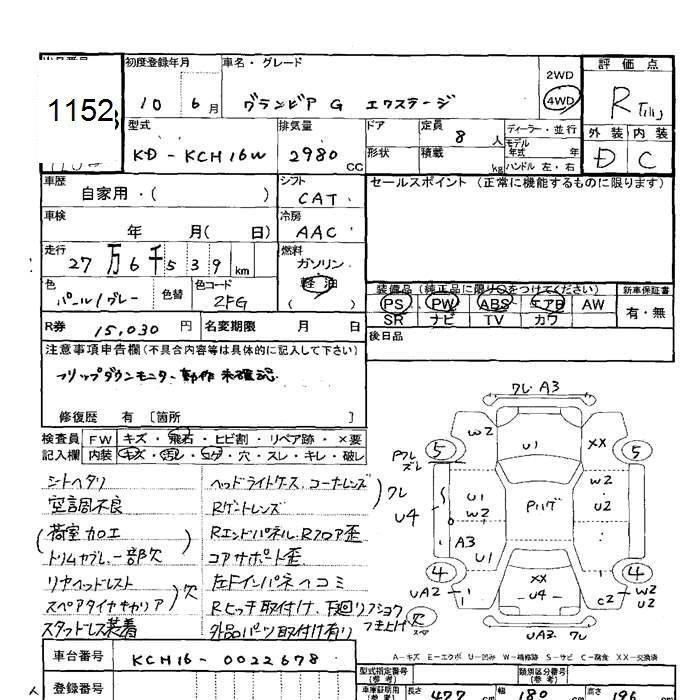 初度登録年月 車名・グレード 評価点
1152 10年 6月 グランビア G エクスサージ 2WD 4WD R
型式 排気量 ドア 定員 8人 ディーラー・並行 外装 内装
KD-KCH16W 2980 CC 形状 積載 kg モデル年式 年 ハンドル 左・右 D C
車歴 シフト セールスポイント (正常に機能するものに限ります)
自家用・( ) CAT
車検 冷房
年 月( 日) AAC
走行 燃料
27万6千539 km ガソリン
軽油
( )
色 色替 色コード 装備品 (純正品に限り○をつけてください) 新車保証書
パール/グレー 2FG PS PW ABS エアB AW 有・無
SR ナビ TV カワ
R券 15,030円 名変期限 月 日 後日品
注意事項申告欄(不具合内容等は具体的に記入して下さい)
フリップダウンモニター動作未確認
修復歴 有 [箇所 ]
検査員 FW キズ・飛石・ヒビ割・リペア跡・×要
記入欄 内装 キズ・汚レ・コゲ・穴・スレ・キレ・破レ
シートヘタリ ヘッドライトケース、コーナーレンズ
空調不良 Rゲートレンズ
荷室加工 Rエンドパネル、Rフロア歪
トリムヤブレ、一部欠 コアサポート歪
リヤヘッドレスト 左Fインパネヘコミ
スペアタイヤキャリア 欠 Rヒッチ取付け、下廻リフショク
スタッドレス装着 外品パーツ取付け有り つき上げ
ワレ A3
W2 U1 XX
5 5
ワレ
U4
U1
W2
P117G
W2
U2
A3 U1
4 4
XX
U4
UA2
C2
W2
U2
欠
スペア
UA3 ワレ
A-キズ E-エクボ U-凹み W-補修跡 S-サビ C-腐食 XX-交換済
車台番号 KCH16-0022678 型式指定番号(参考) 類別区分番号(参考)
登録番号 車庫証明用(参考) 長さ 477 cm 幅 180 cm 高さ 196 cm